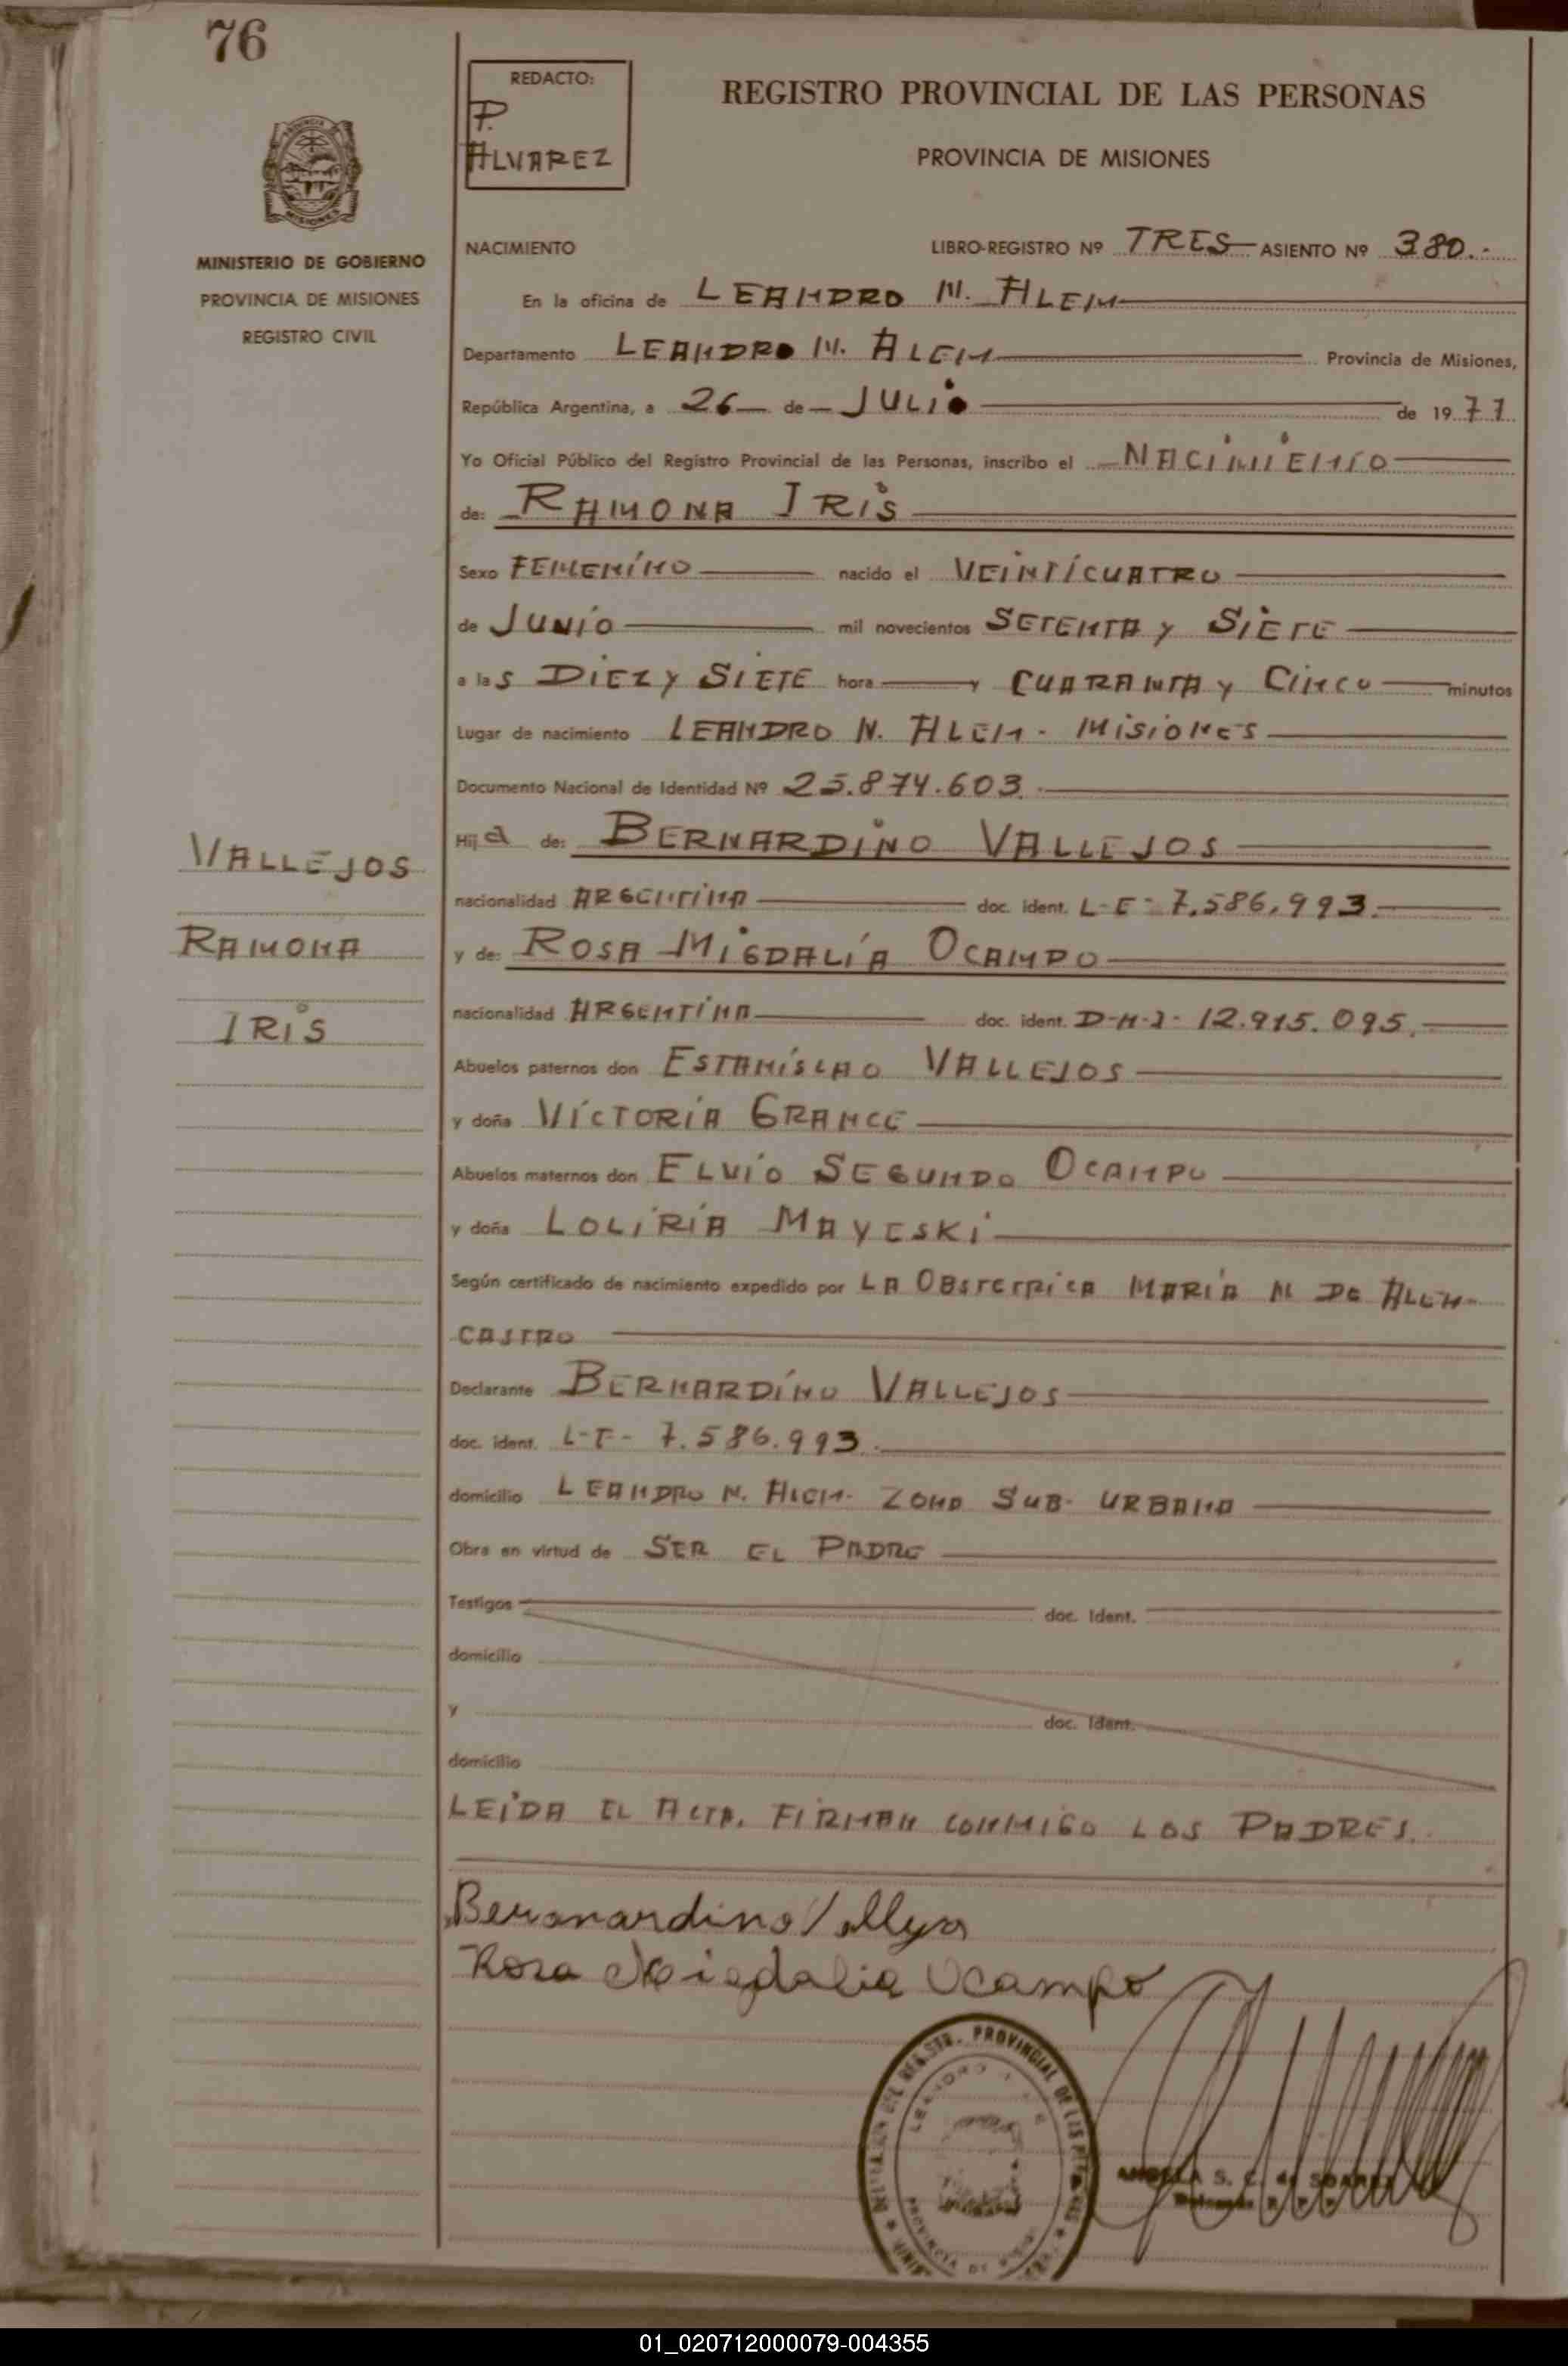 76
REDACTO:
P.
ALVAREZ
REGISTRO PROVINCIAL DE LAS PERSONAS
PROVINCIA DE MISIONES
MINISTERIO DE GOBIERNO
PROVINCIA DE MISIONES
REGISTRO CIVIL
NACIMIENTO LIBRO-REGISTRO Nº TRES ASIENTO Nº 380.-
En la oficina de LEANDRO N. ALEM
Departamento LEANDRO N. ALEM Provincia de Misiones,
República Argentina, a 26 de JULIO de 1977
Yo Oficial Público del Registro Provincial de las Personas, inscribo el NACIMIENTO
de: RAMONA IRIS
Sexo FEMENINO nacido el VEINTICUATRO
de JUNIO mil novecientos SETENTA Y SIETE
a las DIEZ Y SIETE hora y CUARANTA Y CINCO minutos
Lugar de nacimiento LEANDRO N. ALEM - MISIONES
Documento Nacional de Identidad Nº 25.874.603.
Hija de: BERNARDINO VALLEJOS
nacionalidad ARGENTINA doc. ident. L-E- 7.586.993.
y de: ROSA MIGDALIA OCAMPO
nacionalidad ARGENTINA doc. ident. D-N-I- 12.915.095.
Abuelos paternos don ESTANISLAO VALLEJOS
y doña VICTORIA GRANCE
Abuelos maternos don ELVIO SEGUNDO OCAMPO
y doña LOLIRIA MAYESKI
Según certificado de nacimiento expedido por LA OBSTETRICA MARIA N DE ALEN-
CASTRO
Declarante BERNARDINO VALLEJOS
doc. ident. L-E- 7.586.993.
domicilio LEANDRO N. ALEM- ZONA SUB- URBANA
Obra en virtud de SER EL PADRE
Testigos doc. Ident.
domicilio
y doc. Ident.
domicilio
LEIDA EL ACTA, FIRMAN CONMIGO LOS PADRES.
VALLEJOS
RAMONA
IRIS
Rosa Migdalia Ocampo
PROVINCIAL DE LAS
01_020712000079-004355